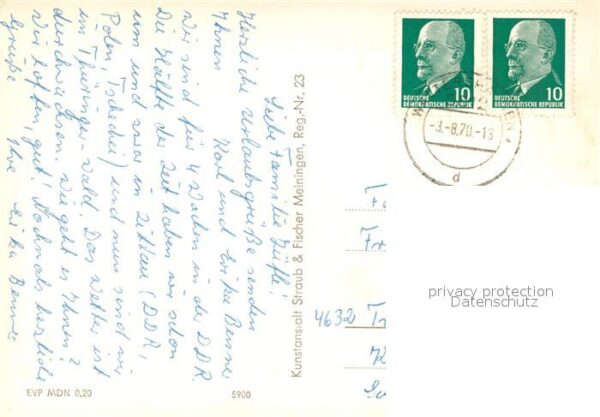 Liebe Familie Züfle!
Herzliche Urlaubsgrüße senden
Ihnen Karl und Erika Benner
wir sind für 4 Wochen in der DDR.
Die Hälfte der Zeit haben wir schon
um und zwar in Zittau (DDR,
Polen, Tschechei) und nun sind wir
im Thüringer Wald. Das Wetter ist
durchwachsen. Wie geht es Ihnen?
Wir hoffen gut! Nochmals herzliche
Grüße Ihre Erika Benner
EVP MDN 0,20
5900
Kunstanstalt Straub & Fischer Meiningen, Reg.-Nr. 23
10
DEUTSCHE
DEMOKRATISCHE REPUBLIK
10
DEUTSCHE
DEMOKRATISCHE REPUBLIK
-3.-8.70.-18
d
4632
privacy protection
Datenschutz